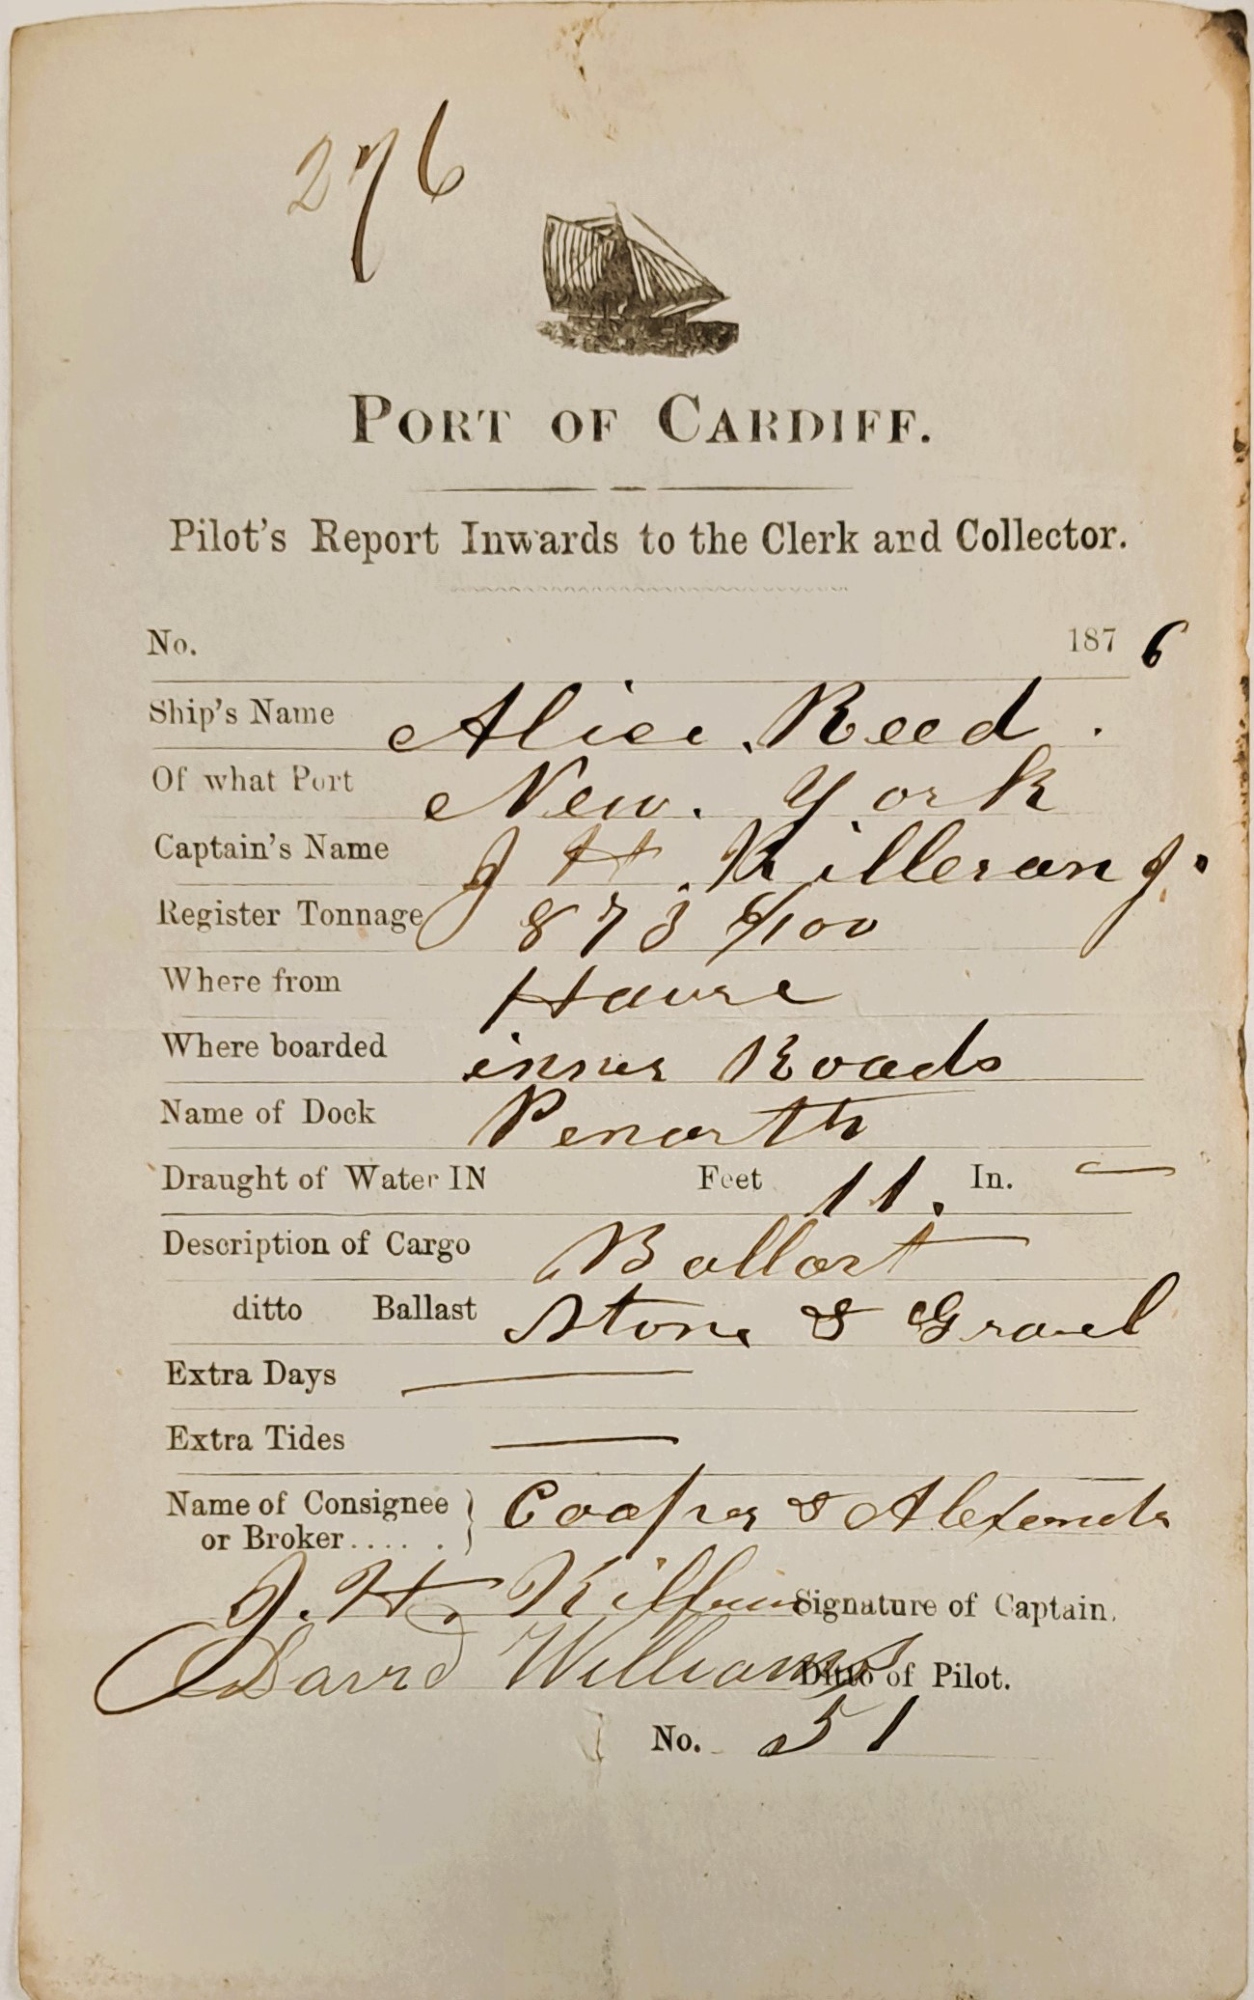 276
PORT OF CARDIFF.
Pilot's Report Inwards to the Clerk and Collector.
No. 1876
Ship's Name Alice Reed.
Of what Port New. York
Captain's Name J H. Killeran J.
Register Tonnage 873 /100
Where from Havre
Where boarded inner Roads
Name of Dock Penarth
Draught of Water IN Feet 11. In. —
Description of Cargo Ballast
ditto Ballast Stone & Gravel
Extra Days —
Extra Tides —
Name of Consignee
or Broker..... } Cooper & Alexander
J. H. Killeran Signature of Captain.
David Williams Ditto of Pilot.
No. 51